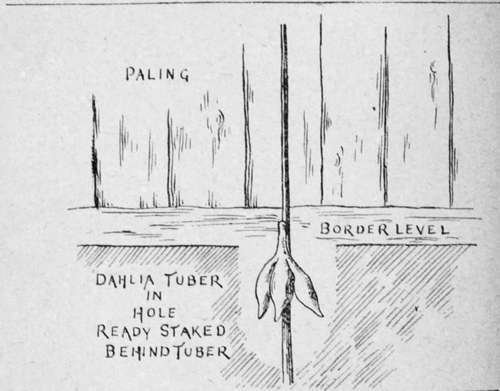 PALING
BORDER LEVEL
DAHLIA TUBER
IN
HOLE
READY STAKED
BEHIND TUBER